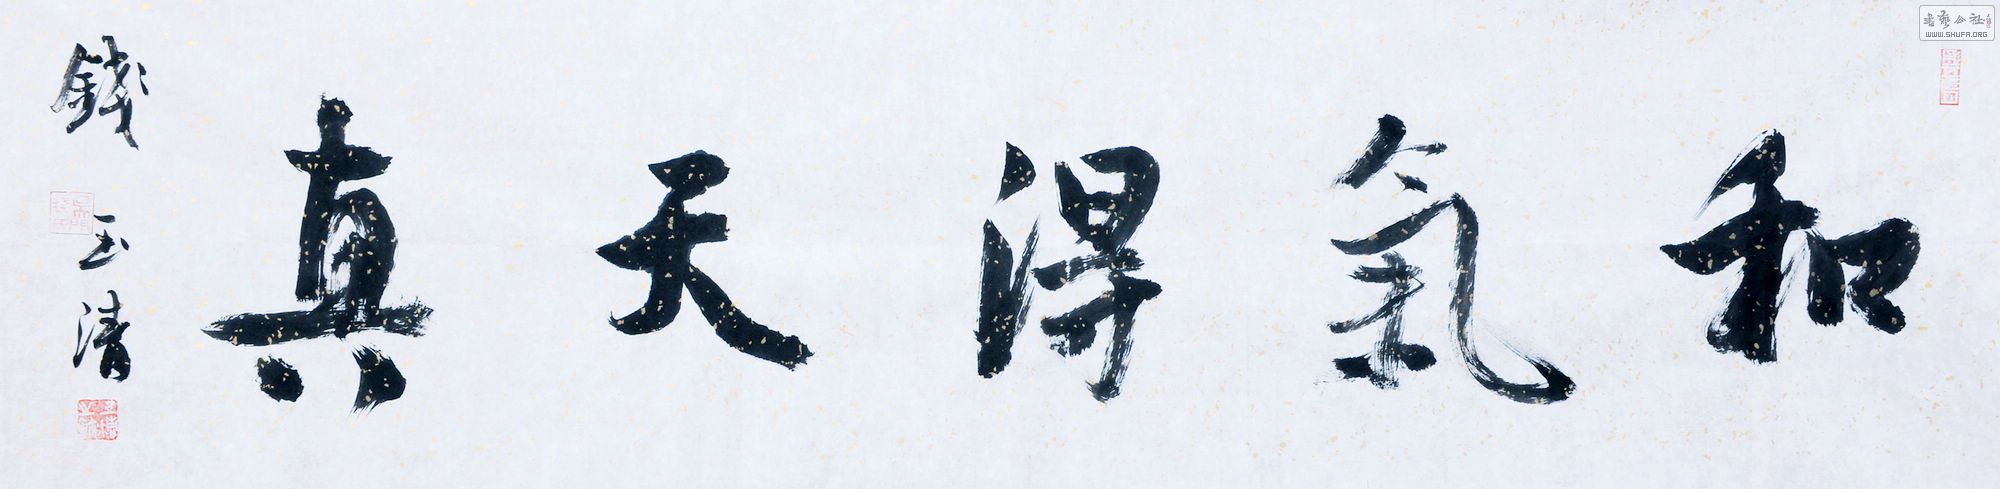 和氣得天真
錢玉清
書藝公社
WWW.SHUFA.ORG